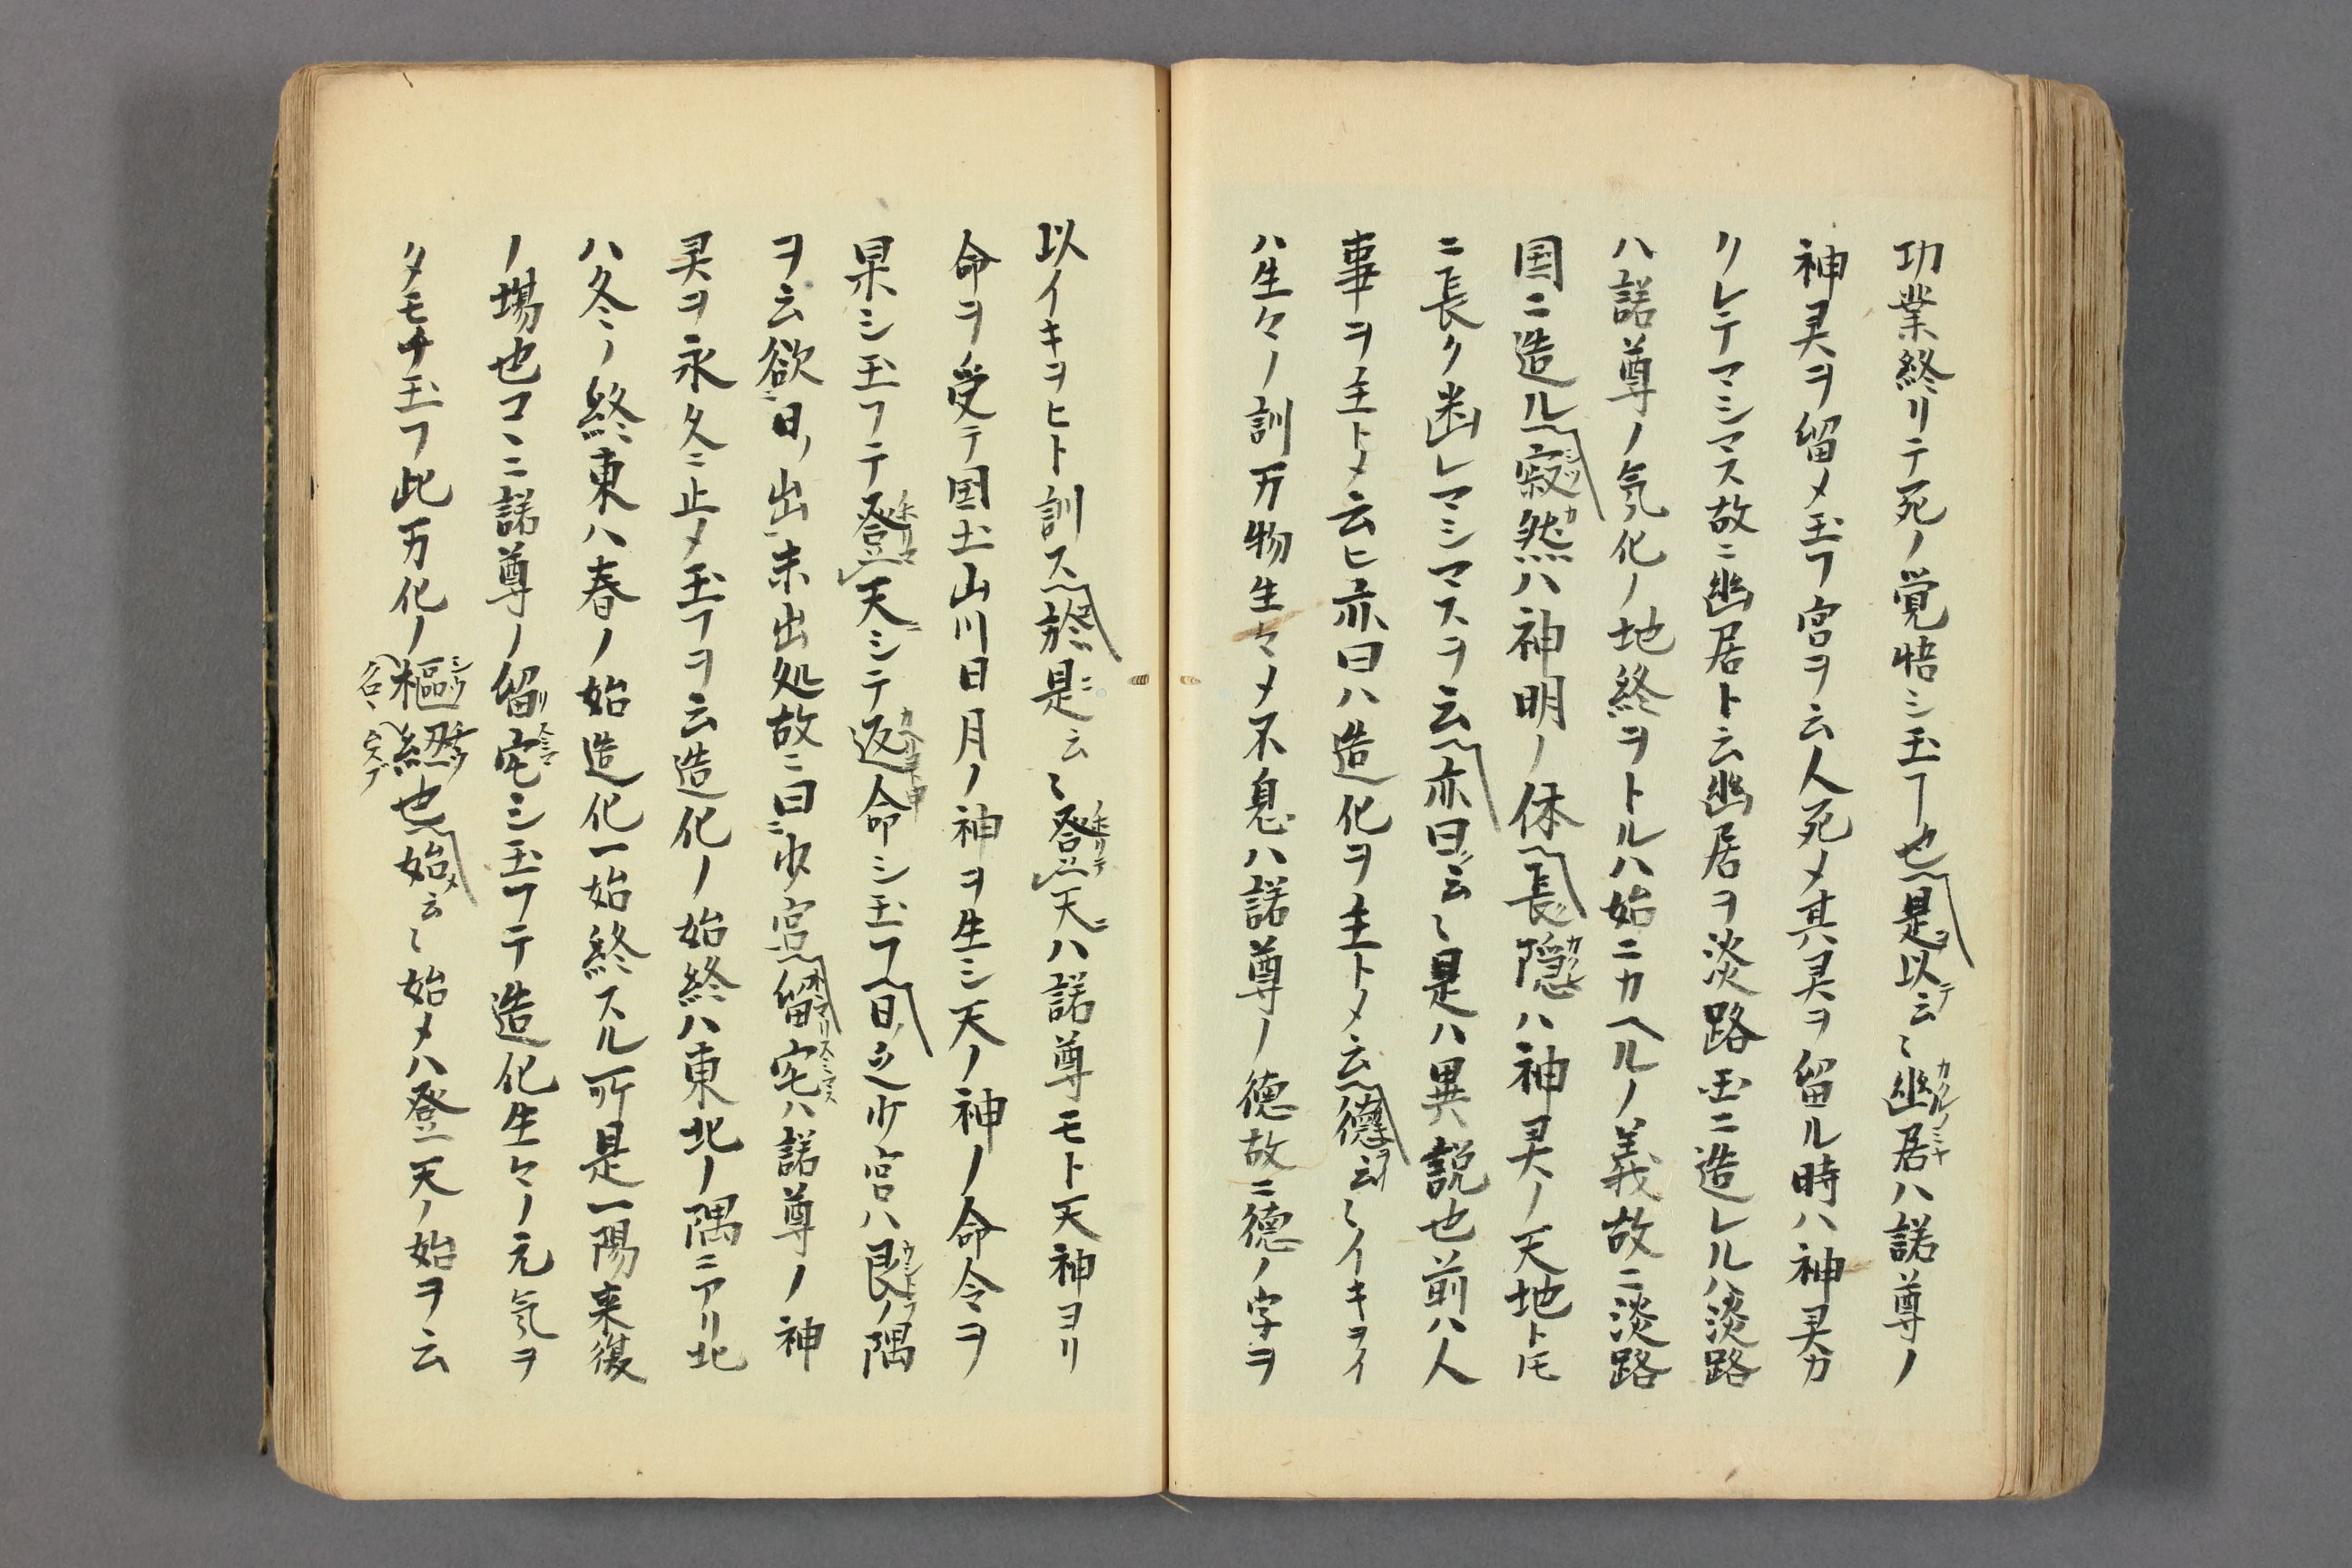 功業終リテ死ノ覚悟シ玉フ也是以テ云〻幽居ハ諾尊ノ
神灵ヲ留メ玉フ宮ヲ云人死メ其灵ヲ留ル時ハ神灵カ
クレテマシマス故ニ幽居ト云幽居ヲ淡路国ニ造レルハ淡路
ハ諾尊ノ気化ノ地終ヲトルハ始ニカヘルノ義故ニ淡路
国ニ造ル寂然ハ神明ノ休長隠ハ神灵ノ天地トモ
ニ長ク幽レマシマスヲ云亦曰云〻是ハ異説也前ハ人
事ヲ主トメ云ヒ亦曰ハ造化ヲ主トメ云徳云〻イキヲイ
ハ生々ノ訓万物生々メ不息ハ諾尊ノ徳故ニ徳ノ字ヲ
以イキヲヒト訓ス於是ニ云〻登天ニハ諾尊モト天神ヨリ
命ヲ受テ国土山川日月ノ神ヲ生シ天ノ神ノ命令ヲ
果シ玉フテ登天シテ返命シ玉フ日之少宮ハ艮ノ隅
ヲ云欲日ノ出未出処故ニ曰少宮留宅ハ諾尊ノ神
灵ヲ永久ニ止メ玉フヲ云造化ノ始終ハ東北ノ隅ニアリ北
ハ冬ノ終東ハ春ノ始造化一始終スル所是一陽来復
ノ場也コヽニ諾尊ノ留宅シ玉フテ造化生々ノ元気ヲ
タモチ玉フ此万化ノ枢紐也始メ云〻始メハ登天ノ始ヲ云